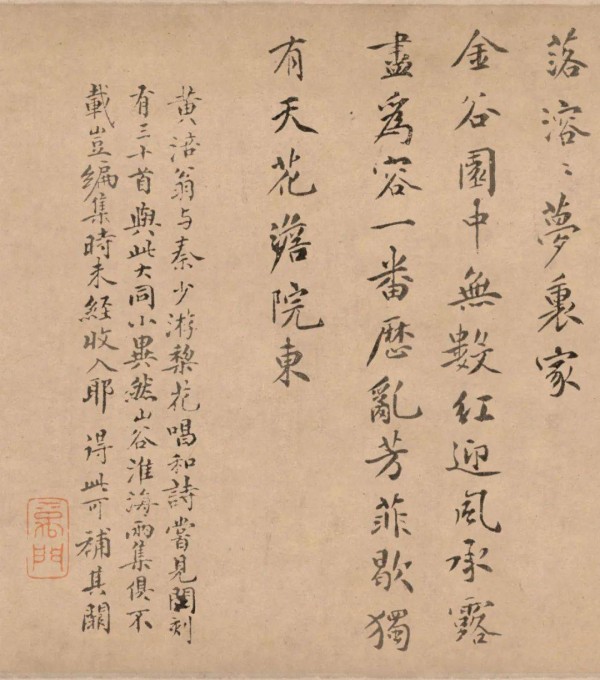 落溶溶夢裏家
金谷園中無數紅迎風承露
盡為容一番歷亂芳菲歇獨
有天花澹院東
黃涪翁与秦少游梨花唱和詩嘗見閣刻
有三十首與此大同小異然山谷淮海兩集俱不
載豈編集時未經收入耶 得此可補其闕